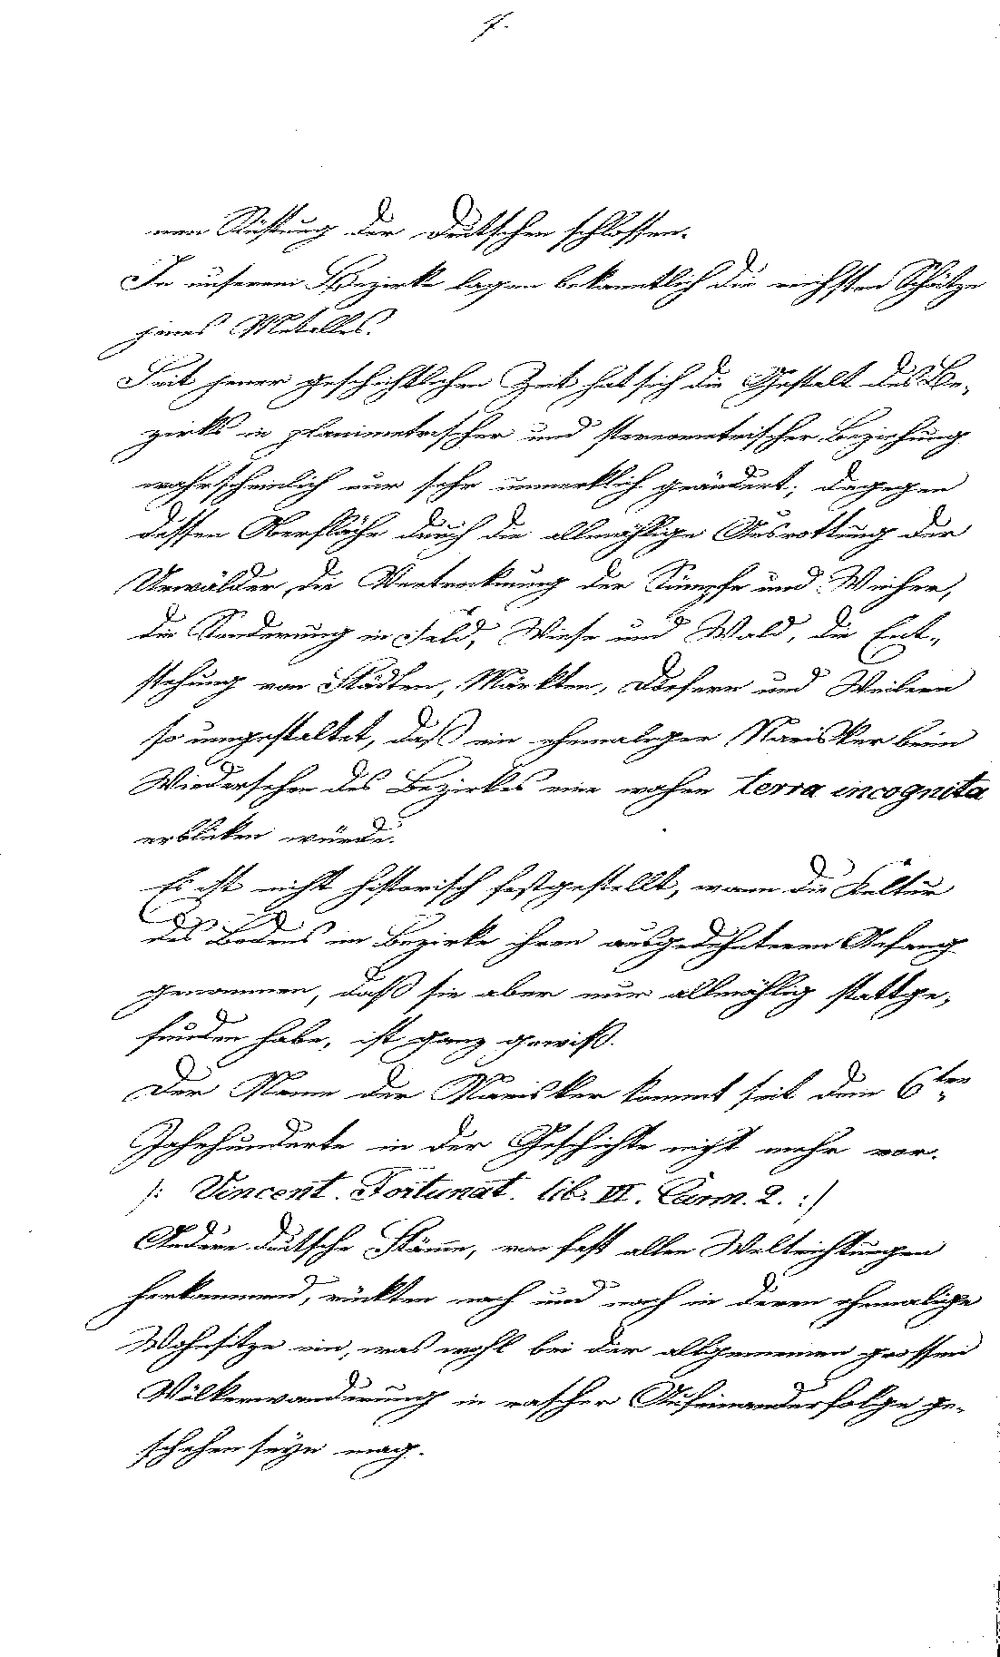 7.
nen Rüstung der Deutschen schlossen.
In unserem Bezirke lagen bekanntlich die reichsten Schätze
jenes Metalles.
Seit jener geschichtlichen Zeit hat sich die Gestalt des Be-
zirks in planimetrischer und stereometrischer Beziehung
wahrscheinlich nur sehr unmerklich geändert; dagegen
dessen Oberfläche durch die allmählige Ausrottung der
Urwälder, die Vertrocknung der Sümpfe und Weiher,
die Sonderung in Feld, Wiese und Wald, die Ent-
stehung von Städten, Märkten, Dörfern und Weilern
so umgestaltet, daß ein ehemaliger Narisker beim
Wiedersehen des Bezirkes eine wahre terra incognita
erblicken würde.
Es ist nicht historisch festgestellt, wann die Kultur
des Bodens im Bezirke ihren ausgedehnteren Anfang
genommen, daß sie aber nur allmählig stattge-
funden habe, ist ganz gewiß.
Der Name der Narisker kommt seit dem 6ten
Jahrhunderte in der Geschichte nicht mehr vor.
/: Vincent. Fortunat. lib. VI. Carm. 2. :/
Andere deutsche Stämme, von fast allen Weltrichtungen
herkommend, rückten nach und nach in deren ehemalige
Wohnsitze ein, was wohl bei der allgemeinen grossen
Völkerwanderung in rascher Aufeinanderfolge ge-
schehen seyn mag.